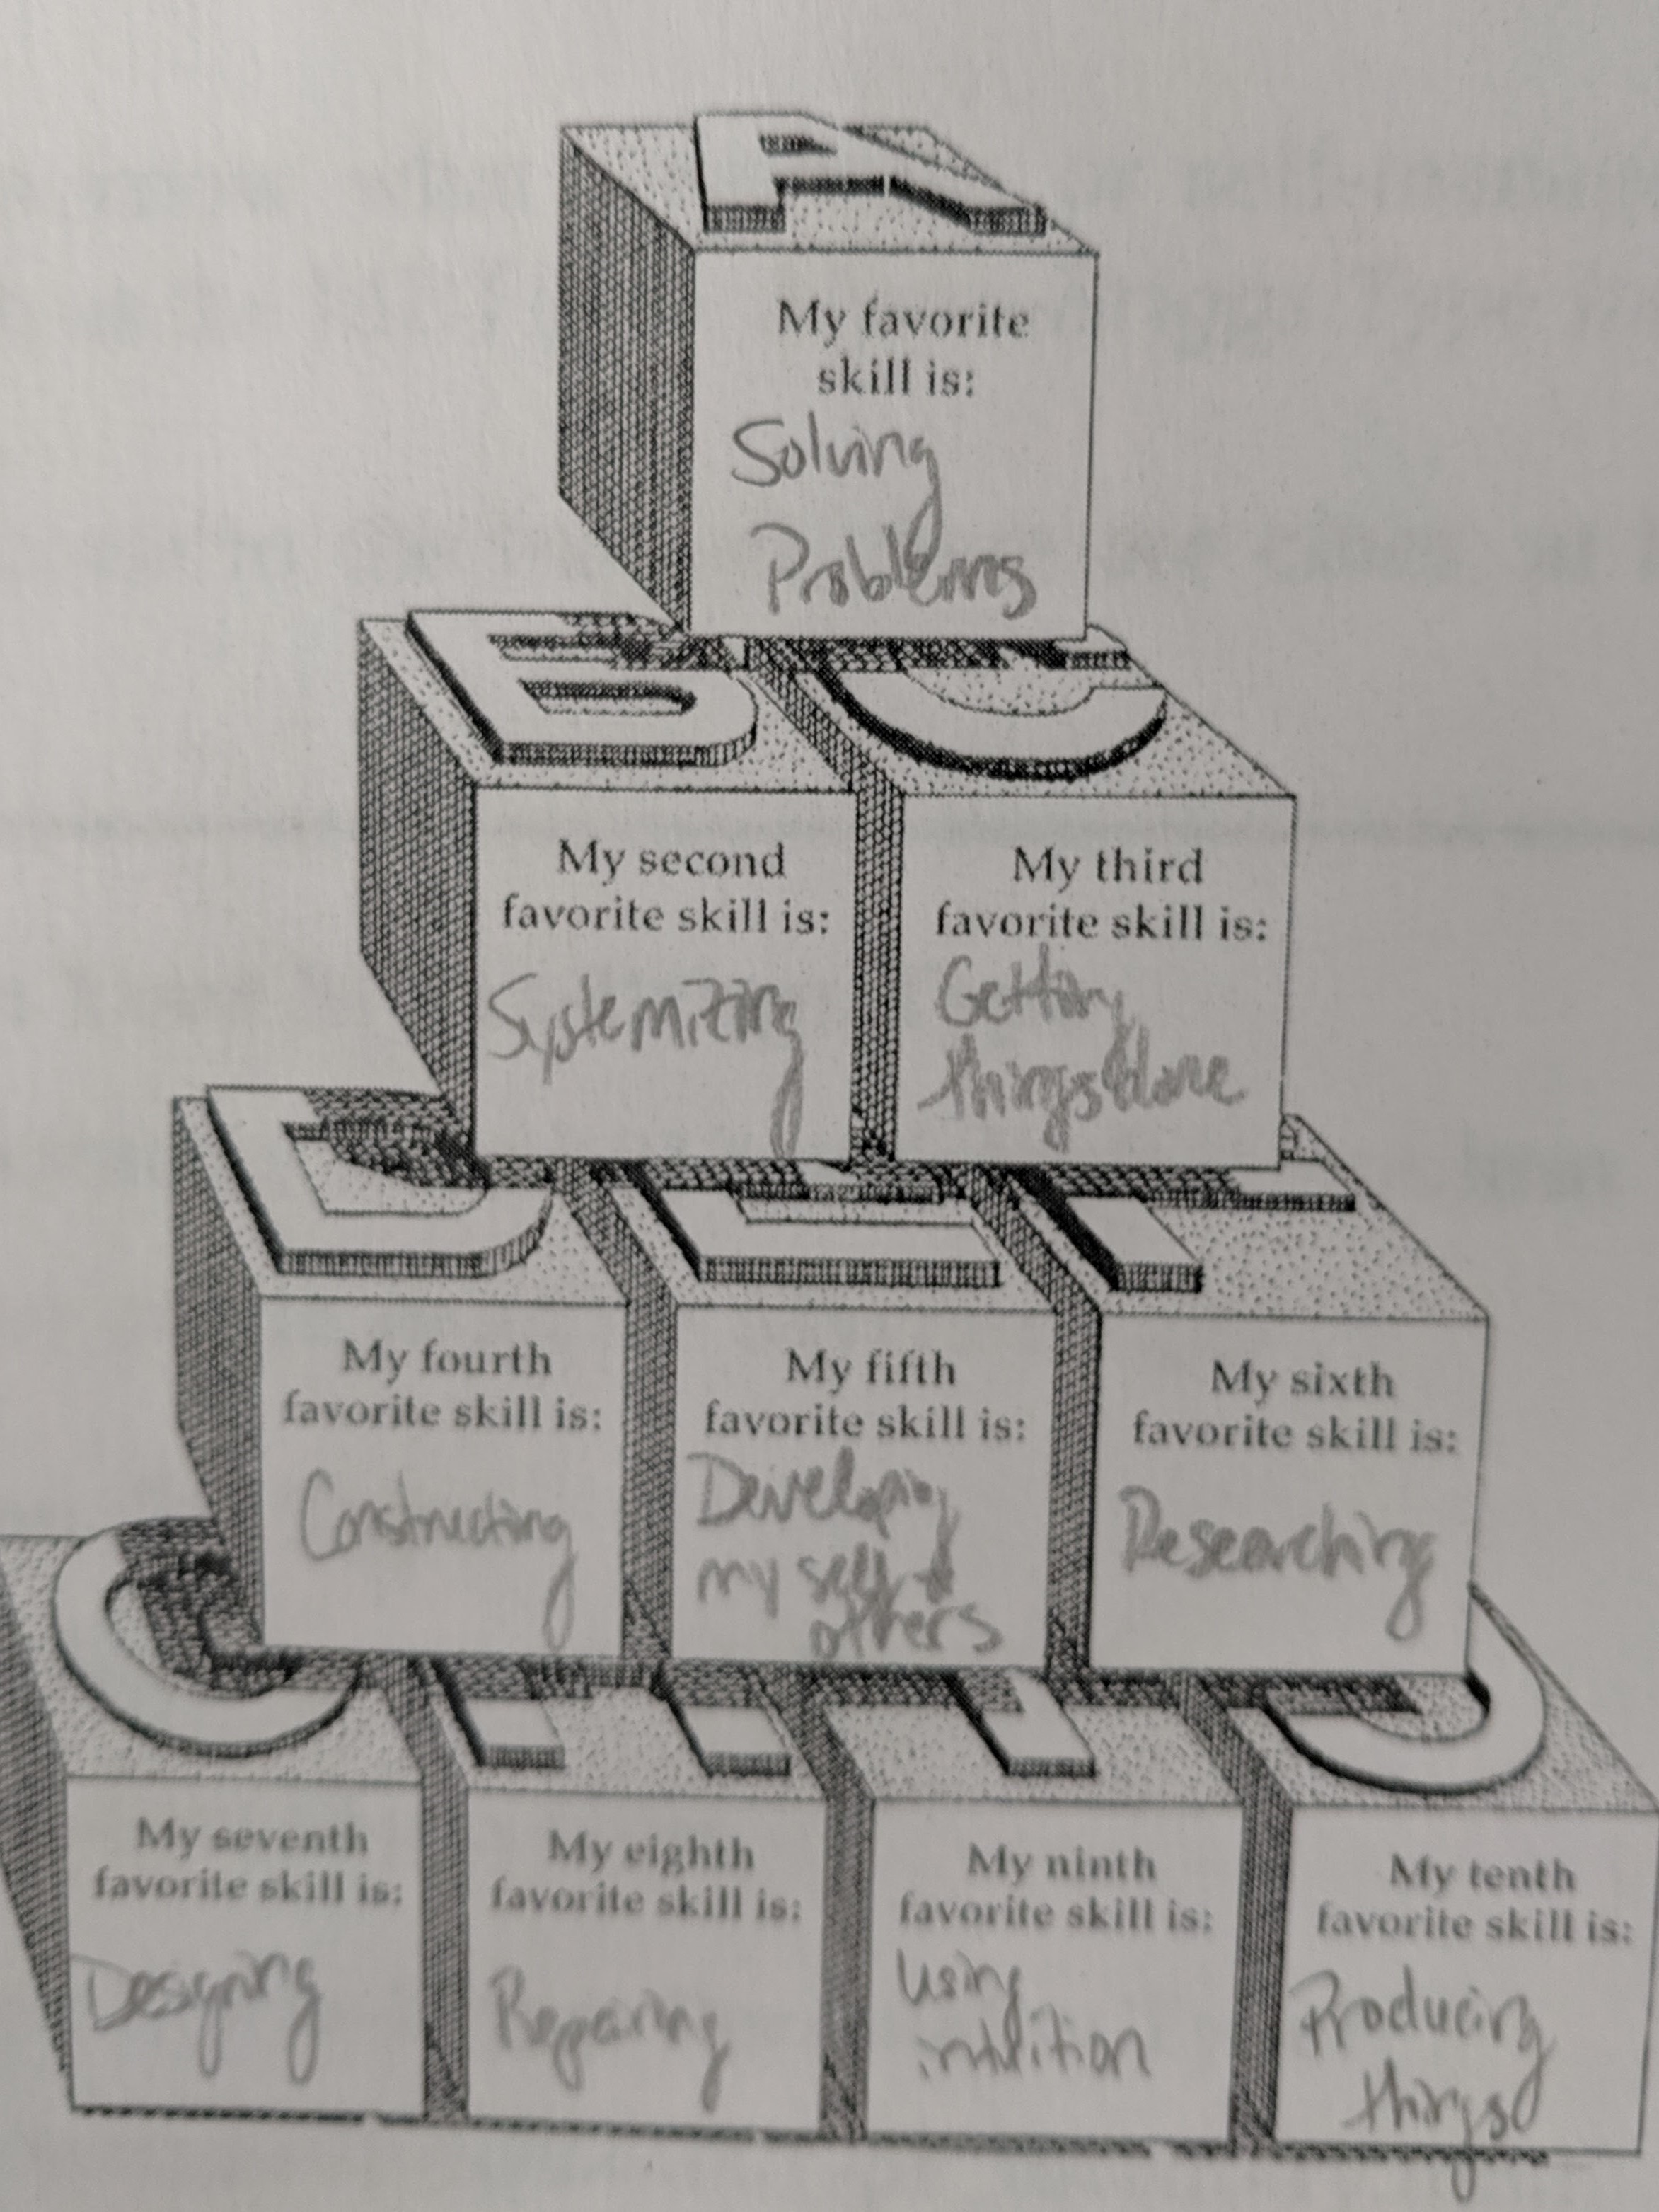 A
My favorite
skill is:
Solving
Problems
B
C
My second
favorite skill is:
Systemizing
My third
favorite skill is:
Getting
things done
D
E
F
My fourth
favorite skill is:
Constructing
My fifth
favorite skill is:
Developing
my self +
others
My sixth
favorite skill is:
Researching
G
H
I
J
My seventh
favorite skill is:
Designing
My eighth
favorite skill is:
Repairing
My ninth
favorite skill is:
Using
intuition
My tenth
favorite skill is:
Producing
things